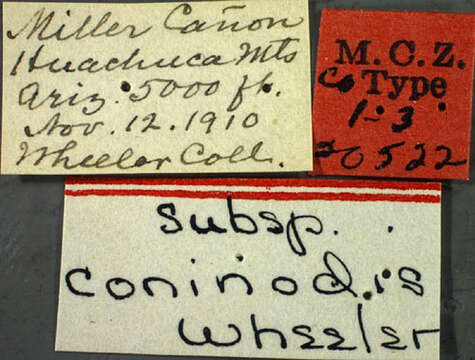 Miller Cañon
Huachuca Mts
Ariz. 5000 ft.
Nov. 12. 1910
Wheeler Coll.
M. C. Z.
Co Type
1-3
20522
subsp.
coninodis
Wheeler